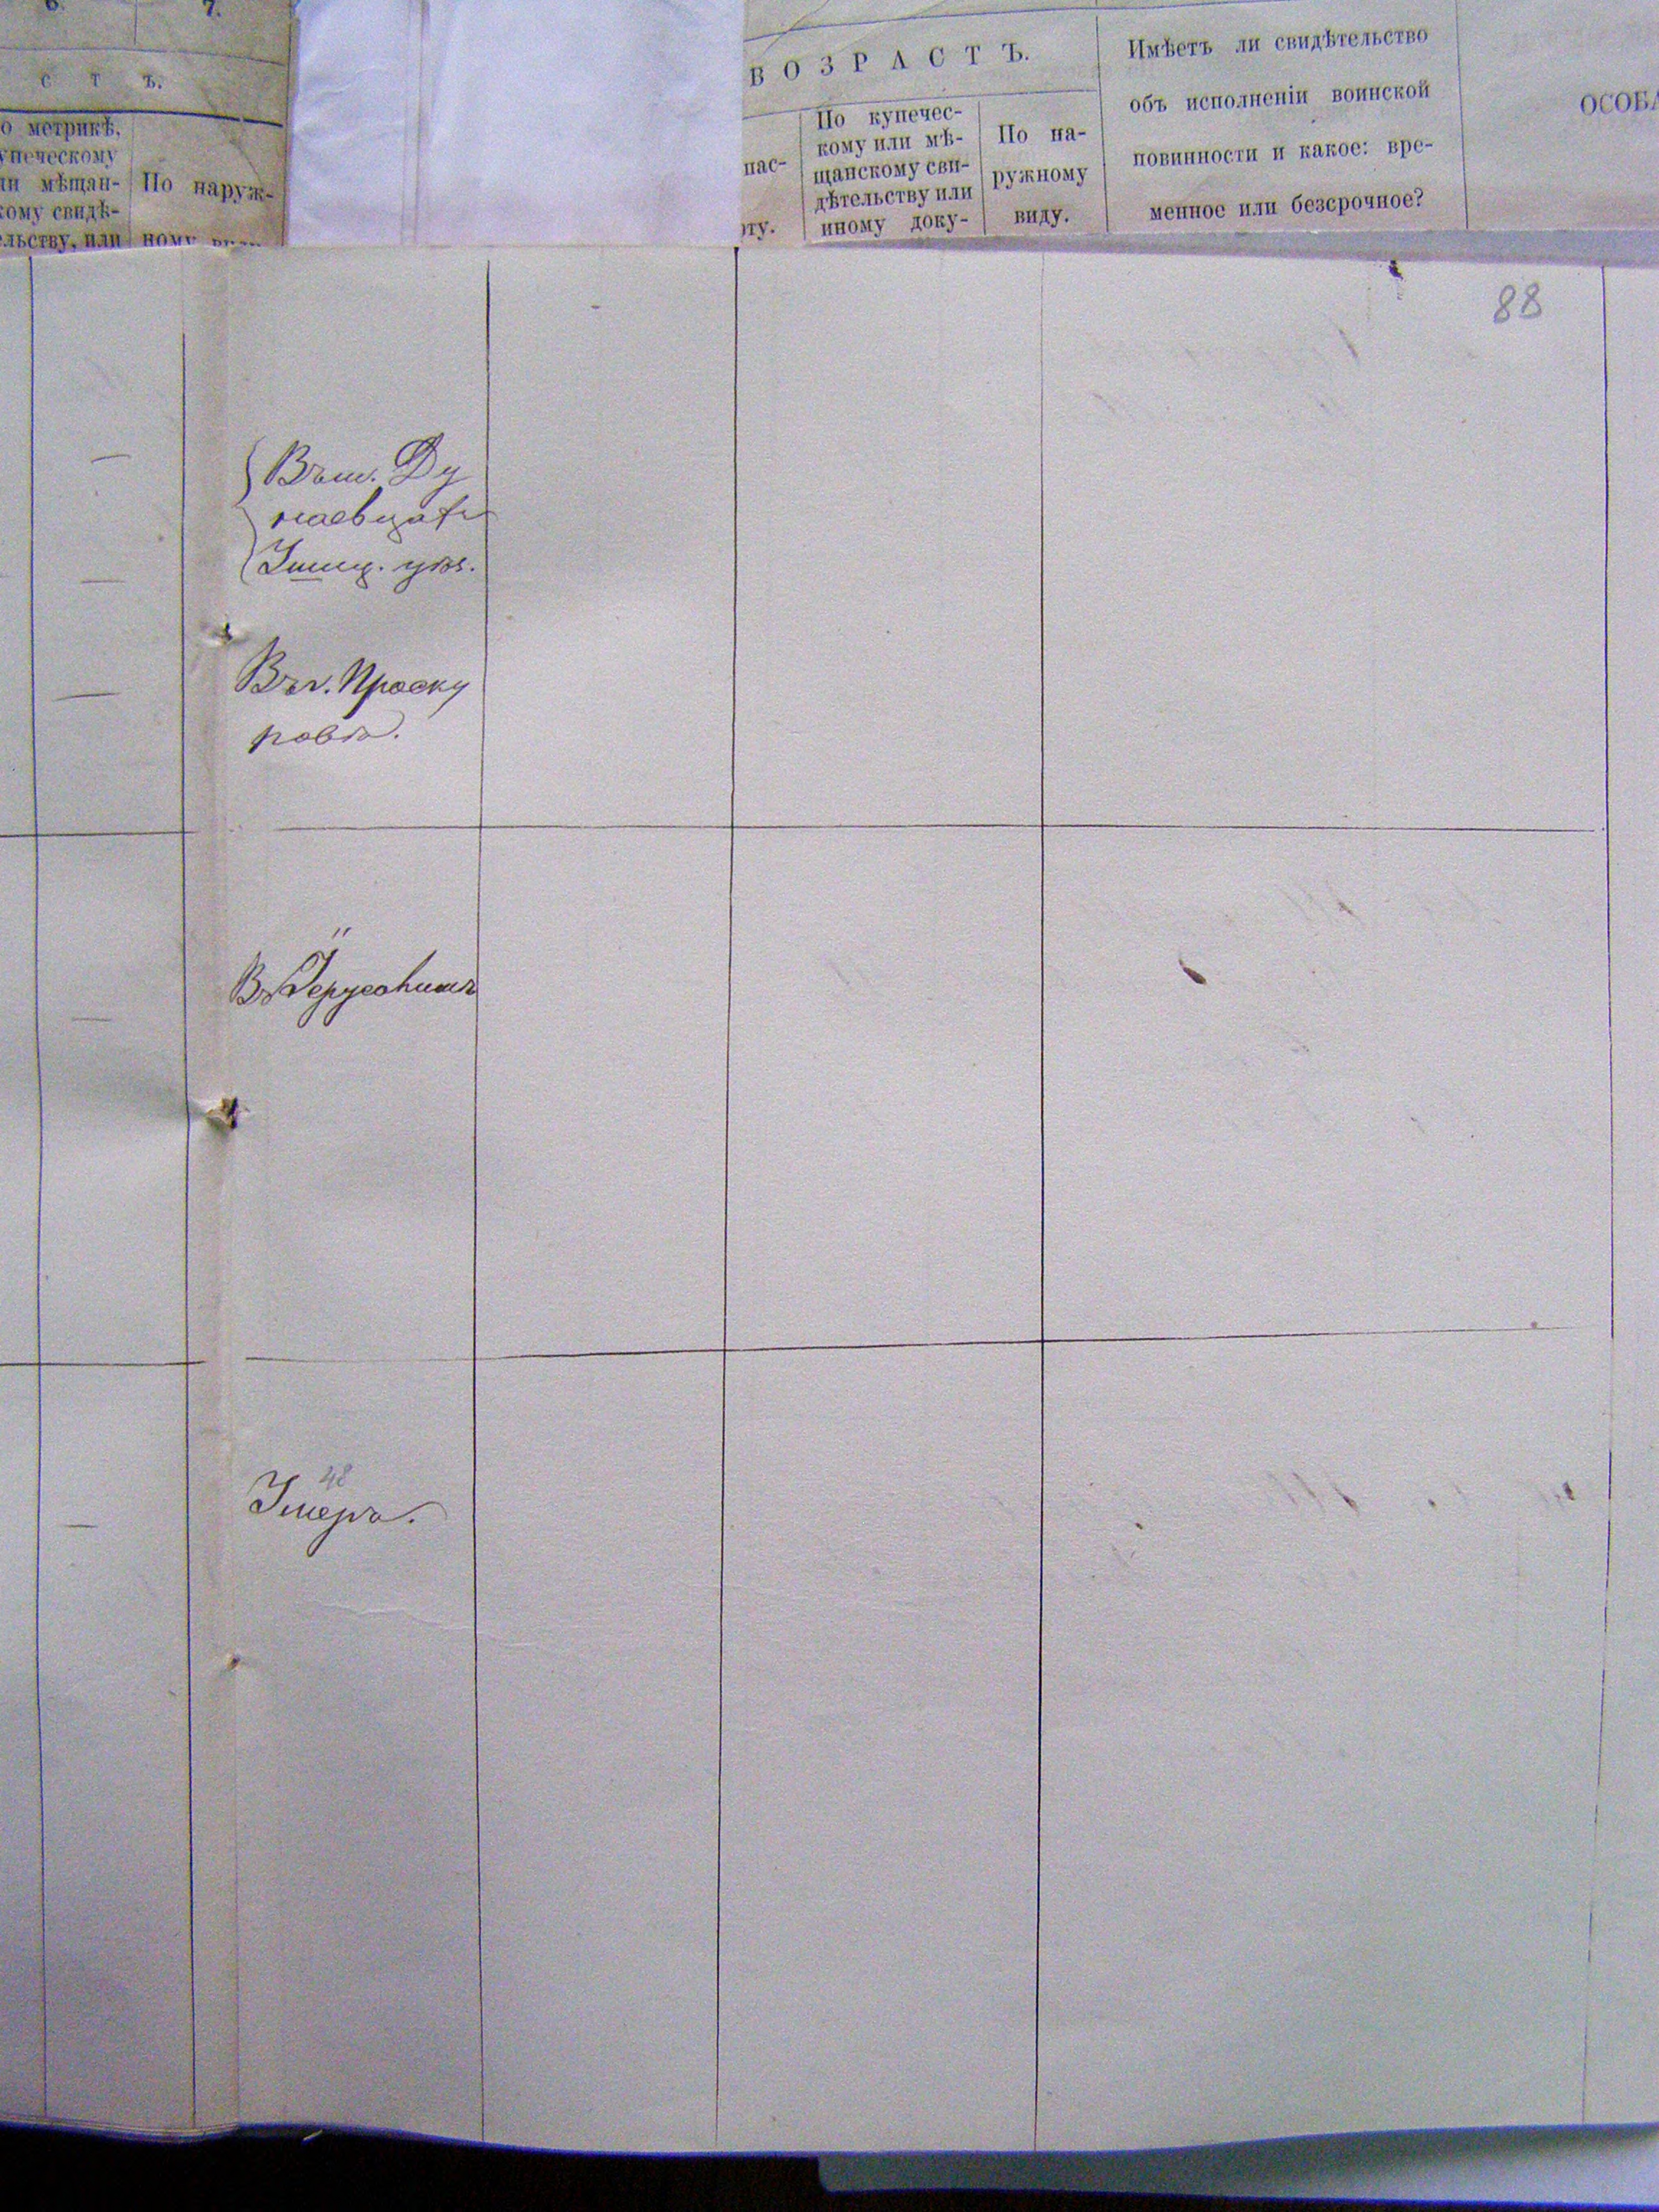 6.
7.
С Т Ъ.
о метрикѣ,
упеческому
ли мѣщан-
кому свидѣ-
льству, или
По наруж-
ному
ВОЗРАСТЪ.
пас-
рту.
По купечес-
кому или мѣ-
щанскому сви-
дѣтельству или
иному доку-
По на-
ружному
виду.
Имѣетъ ли свидѣтельство
объ исполненіи воинской
повинности и какое: вре-
менное или безсрочное?
ОСОБ
88
Въ м. Ду
наевцахъ
Ушиц. уѣз.
Въ г. Проску
ровѣ.
Въ Іерусалимѣ
48
Умеръ.